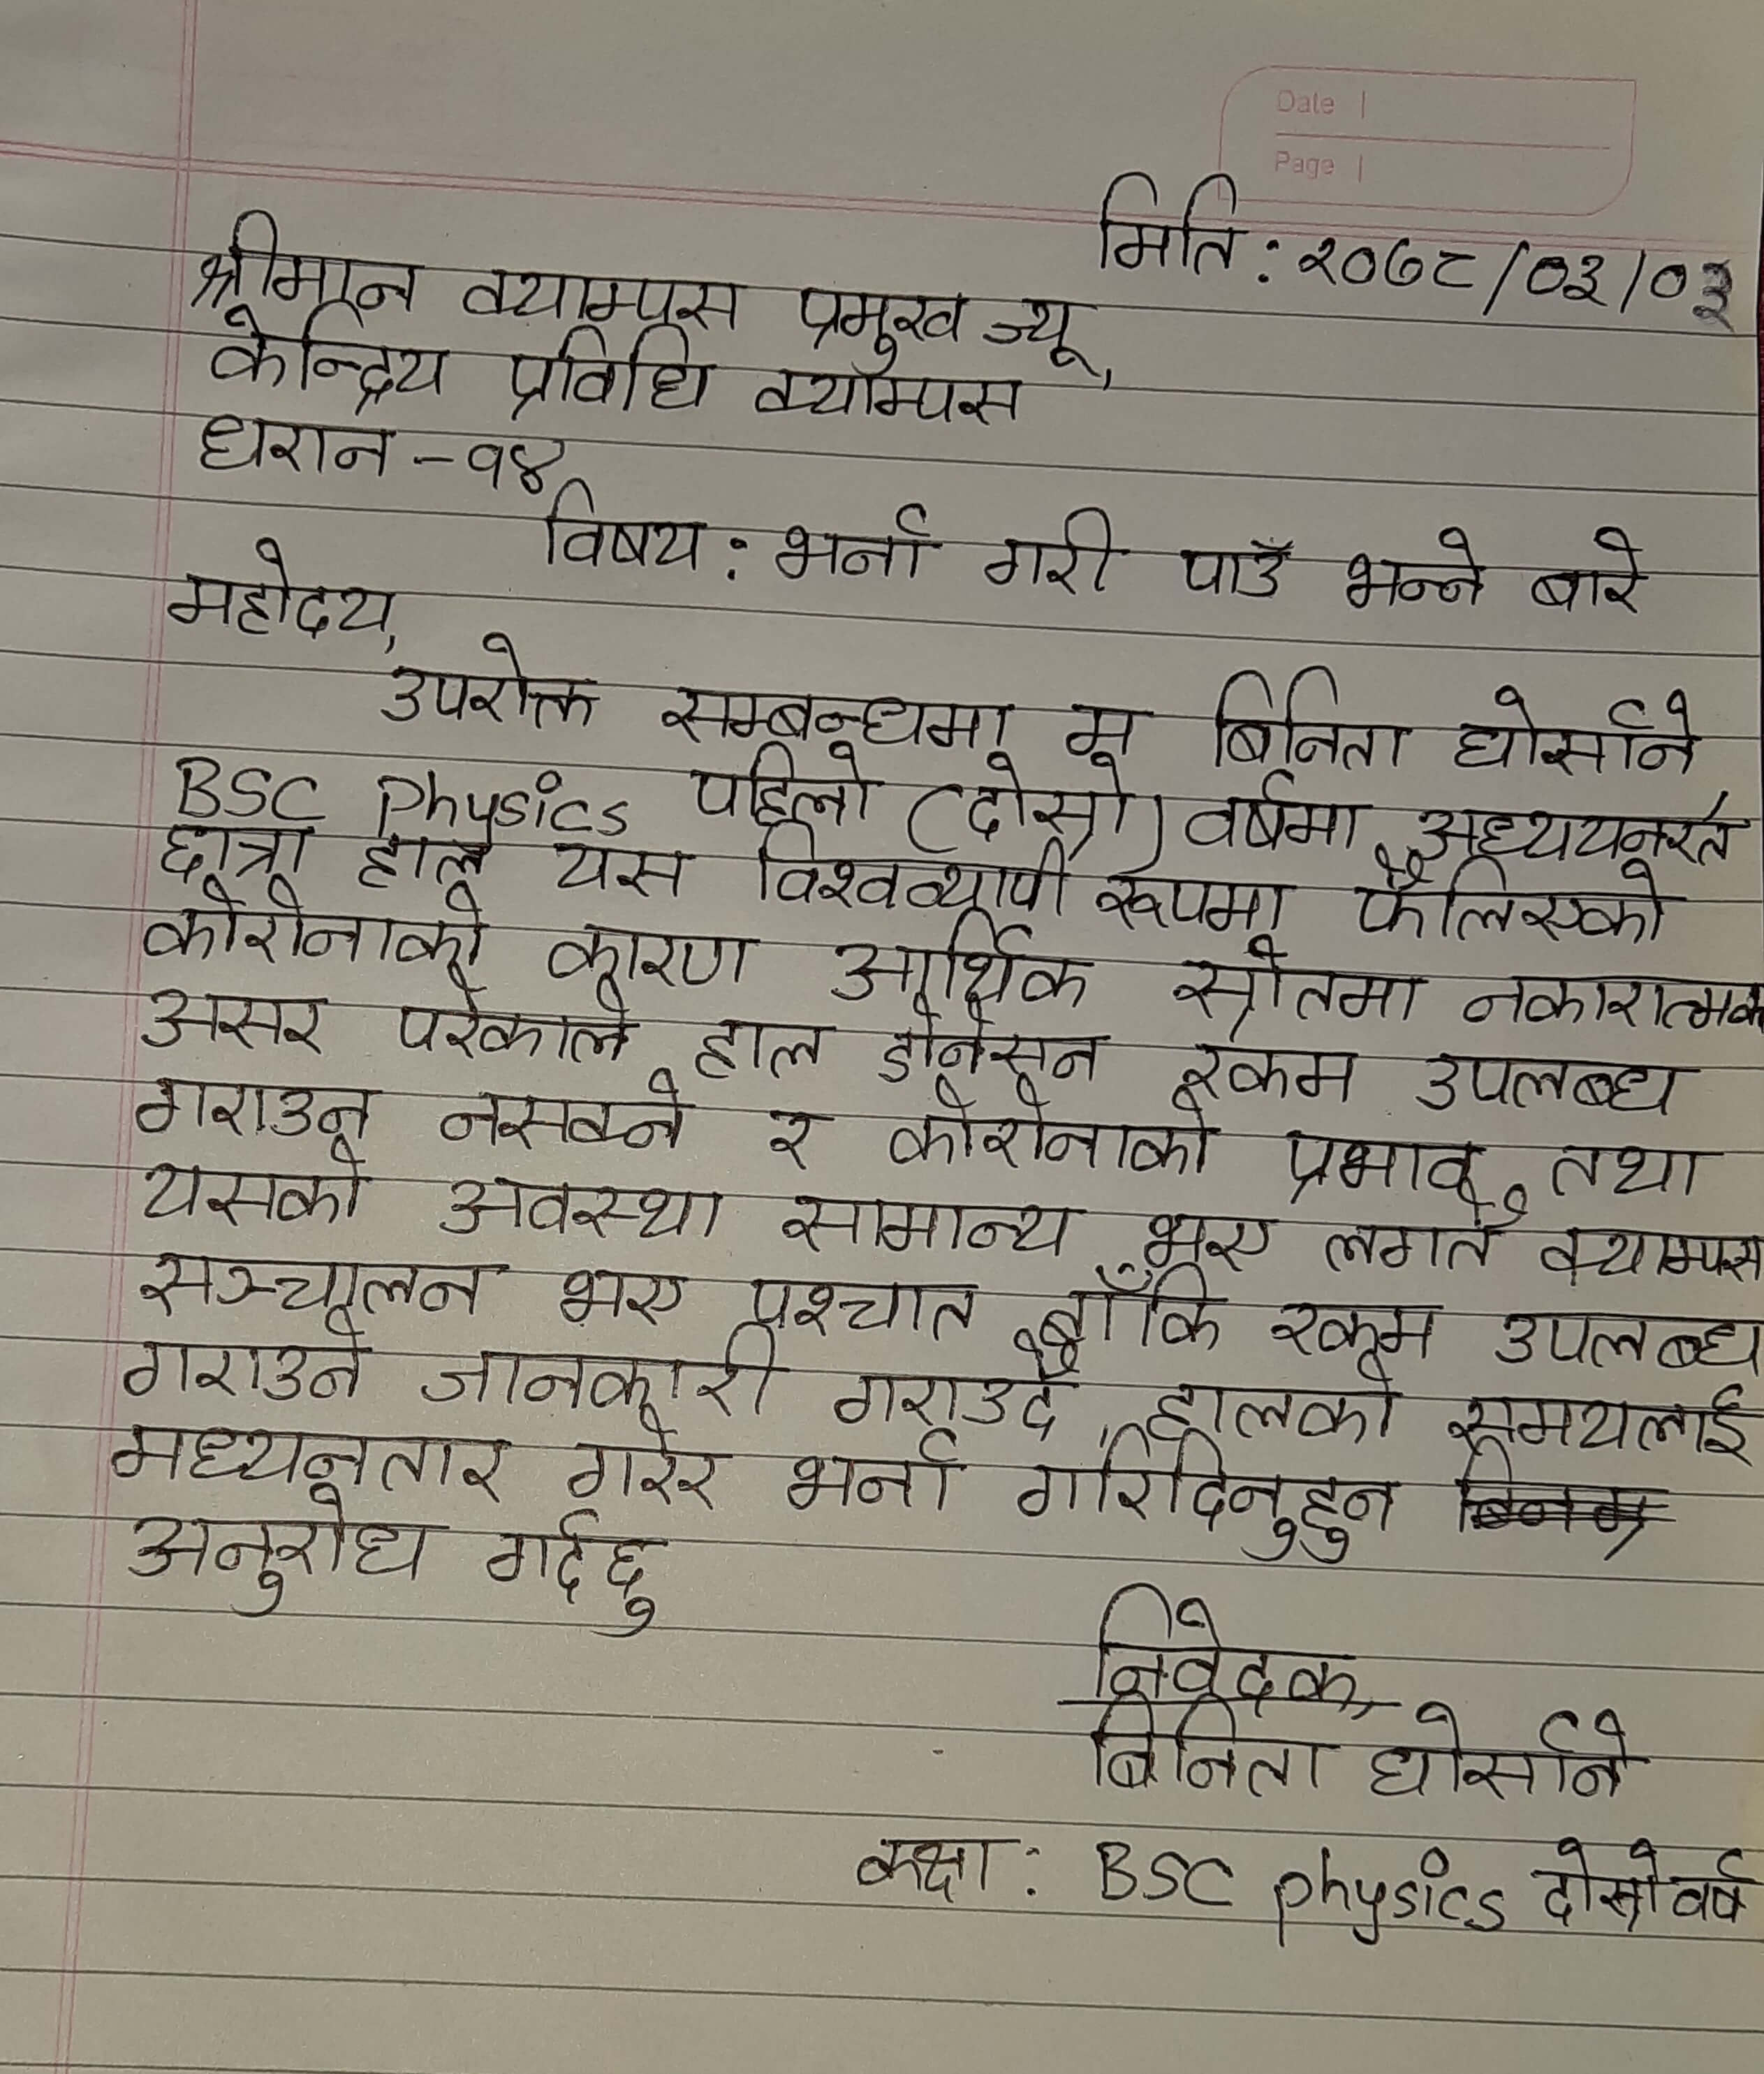 Date
Page
मिति : २०७८/०३/०३
श्रीमान क्याम्पस प्रमुख ज्यू,
केन्द्रिय प्रविधि क्याम्पस
धरान - १४
विषय : भर्ना गरी पाउँ भन्ने बारे
महोदय,
उपरोक्त सम्बन्धमा म बिनिता घोर्साने
BSC Physics पहिलो (दोस्रो) वर्षमा अध्ययनरत
छात्रा हाल यस विश्वव्यापी रूपमा फैलिएको
कोरोनाको कारण आर्थिक स्रोतमा नकारात्मक
असर परेकाले हाल डोनेसन रकम उपलब्ध
गराउन नसक्ने र कोरोनाको प्रभाव तथा
यसको अवस्था सामान्य भए लगतै क्याम्पस
सञ्चालन भए पश्चात बाँकि रकम उपलब्ध
गराउने जानकारी गराउदै, हालको समयलाई
मध्यनतार गरेर भर्ना गरिदिनुहुन
अनुरोध गर्दछु
निवेदक,
बिनिता घोर्साने
कक्षा : BSC physics दोस्रो वर्ष